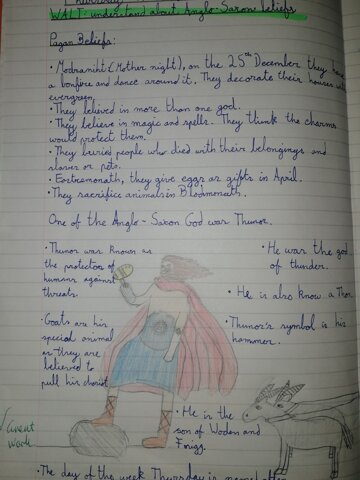 WALT: understand about Anglo-Saxon beliefs
Pagan Beliefs:
• Modraniht (Mother night), on the 25th December they have
a bonfire and dance around it. They decorate their houses with
evergreen.
• They believed in more than one god.
• They believe in magic and spells. They think the charms
would protect them.
• They buried people who died with their belongings and
slaves or pets.
• Eostremonath, they give eggs as gifts in April.
• They sacrifice animals in Blodmonath.
One of the Anglo-Saxon God was Thunor.
• Thunor was known as
the protector of
humans against
threats.
• He was the god
of thunder.
• He is also know a Thor.
• Goats are his
special animal
as they are
believed to
pull his chariot
• Thunor's symbol is his
hammer.
• He is the
son of Woden and
Frigg.
work
• The day of the week Thursday is named after